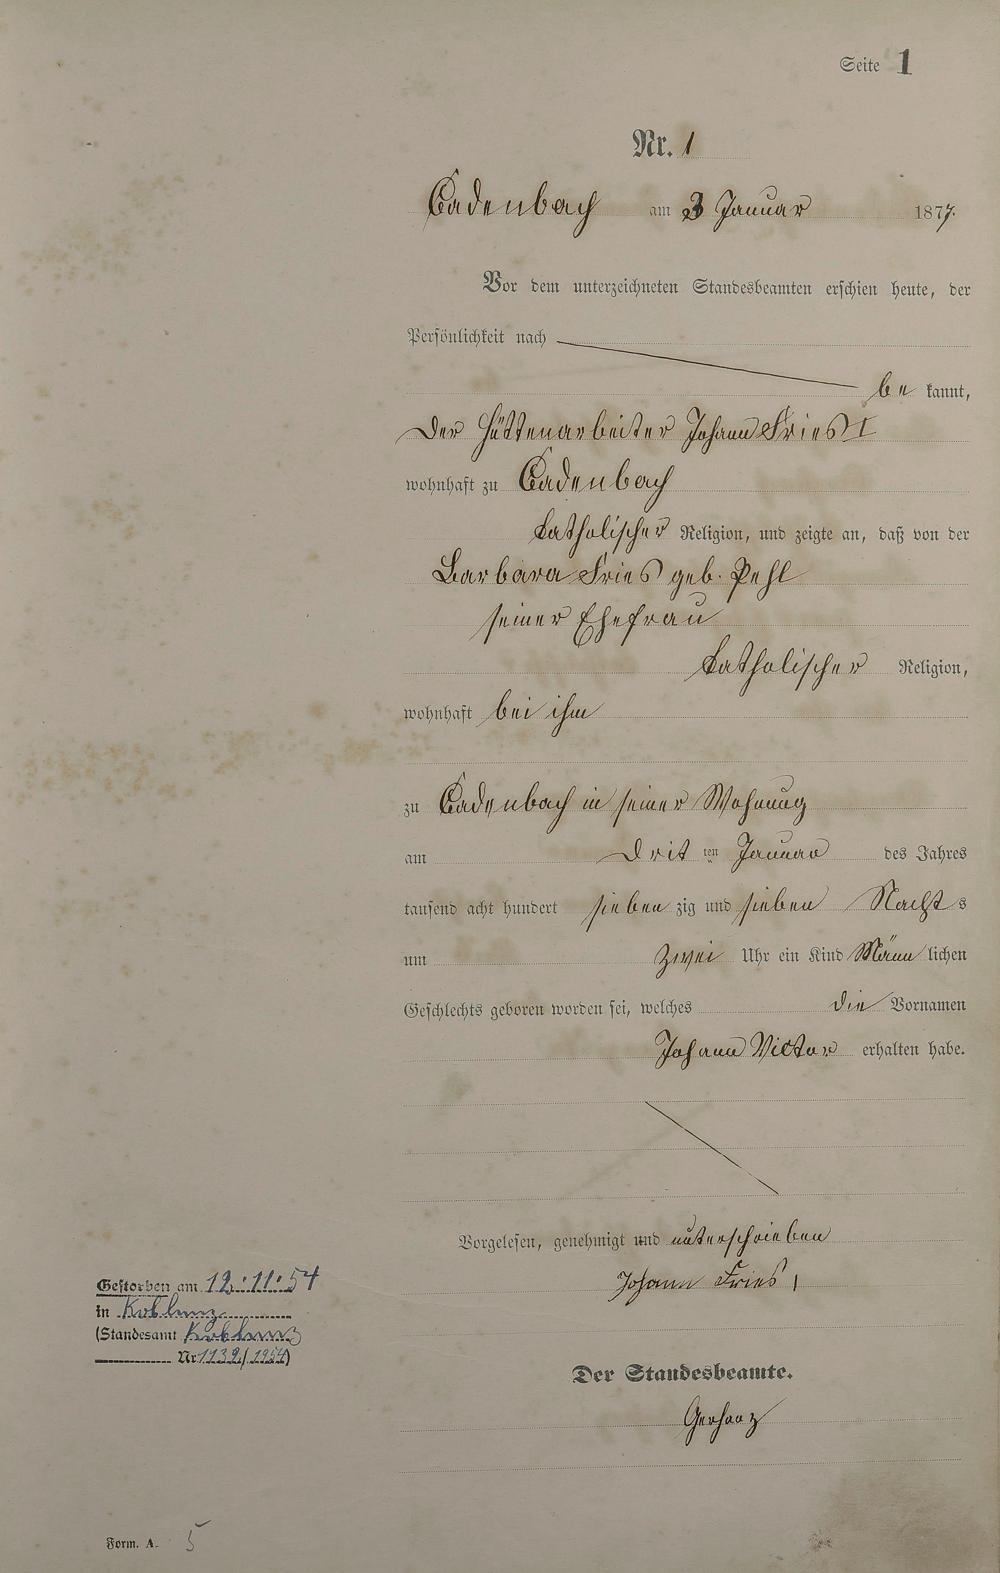 Seite 1
Nr. 1
Cadenbach am 3 Januar 1877.
Vor dem unterzeichneten Standesbeamten erschien heute, der
Persönlichkeit nach
be kannt,
Der Hüttenarbeiter Johann Fries I
wohnhaft zu Cadenbach
katholischer Religion, und zeigte an, daß von der
Barbara Fries geb. Pehl
seiner Ehefrau
katholischer Religion,
wohnhaft bei ihm
zu Cadenbach in seiner Wohnung
am Drit ten Januar des Jahres
tausend acht hundert sieben zig und sieben Nacht s
um zwei Uhr ein Kind Männ lichen
Geschlechts geboren worden sei, welches die Vornamen
Johann Victor erhalten habe.
Vorgelesen, genehmigt und unterschrieben
Johann Fries I
Gestorben am 12.11.54
in Koblenz
(Standesamt Koblenz
Nr 1139/1954)
Der Standesbeamte.
Gerharz
Form. A. 5